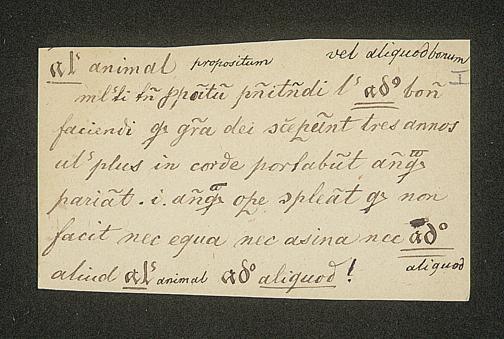 al᷒ animal propositum vel aliquod bonum
ml᷒ti tn̄ ꝓpoĩtū pñitñdi l᷒ ad° boñ
faciendi qͥ gr̃a dei sc̃epũnt tres annos
ul᷒ plus in corde portabũt añqᷓ
pariãt .i. añqᷓ ope ɔpleãt qͥ non
facit nec equa nec asina nec ad°
aliud al᷒ animal ad° aliquod ! aliquod